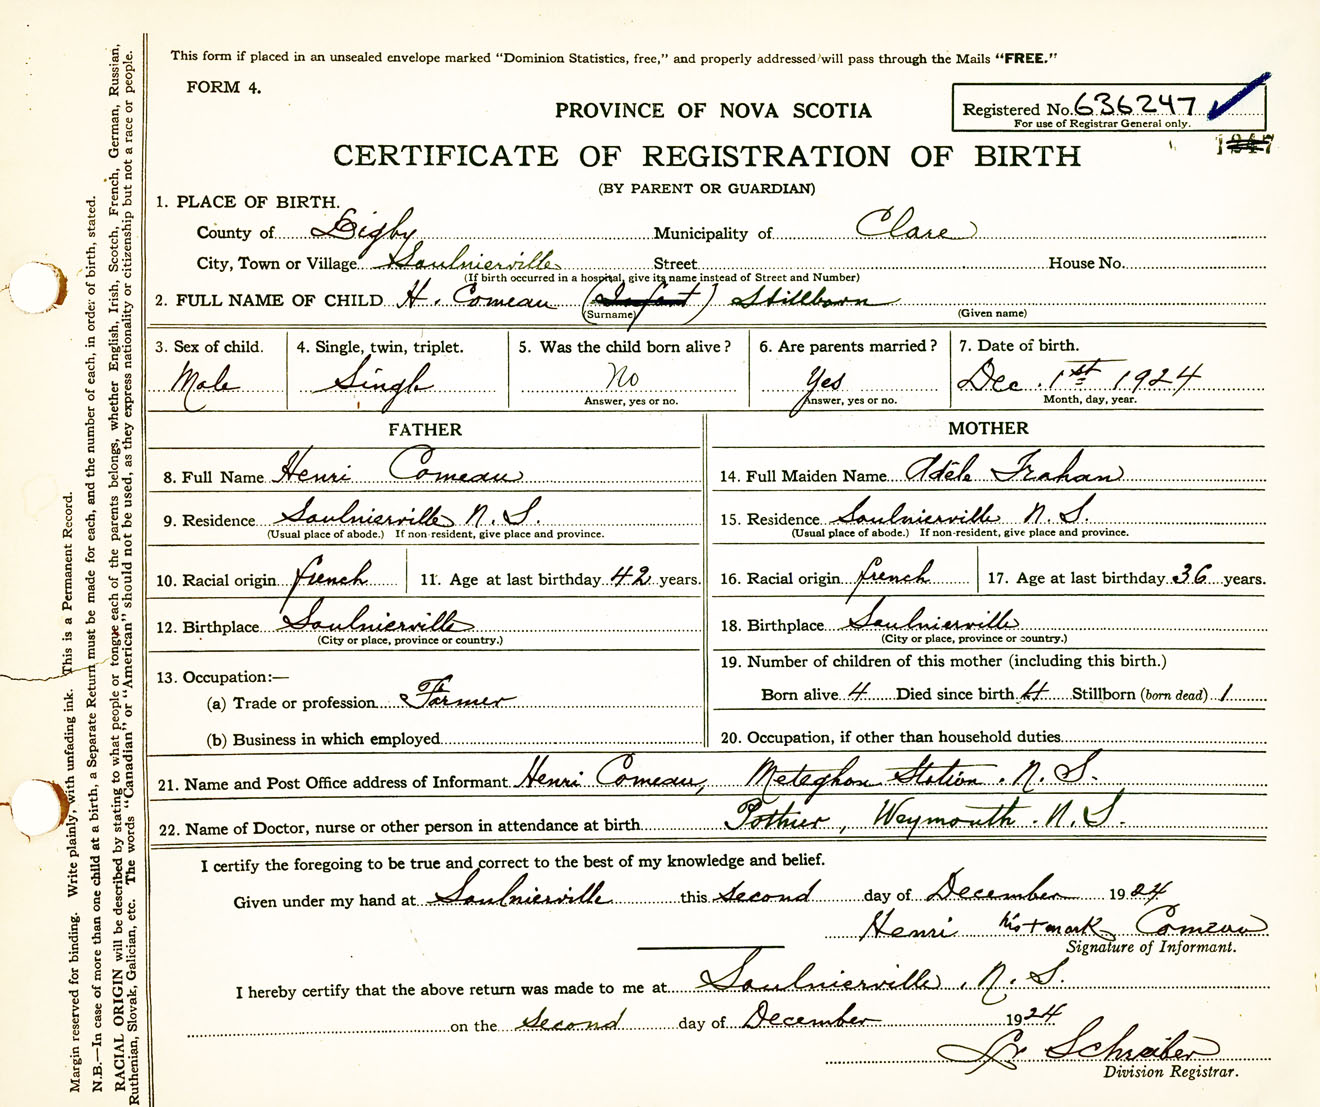 This form if placed in an unsealed envelope marked “Dominion Statistics, free,” and properly addressed will pass through the Mails “FREE.”
FORM 4.
PROVINCE OF NOVA SCOTIA
Registered No. 636247
For use of Registrar General only.
CERTIFICATE OF REGISTRATION OF BIRTH
(BY PARENT OR GUARDIAN)
1. PLACE OF BIRTH.
County of Digby Municipality of Clare
City, Town or Village Saulnierville Street House No.
(If birth occurred in a hospital, give its name instead of Street and Number)
2. FULL NAME OF CHILD H. Comeau (Infant) Stillborn
(Surname) (Given name)
3. Sex of child. 4. Single, twin, triplet. 5. Was the child born alive? 6. Are parents married? 7. Date of birth.
Male Single No Yes Dec. 1st 1924
Answer, yes or no. Answer, yes or no. Month, day, year.
FATHER MOTHER
8. Full Name Henri Comeau 14. Full Maiden Name Adèle Trahan
9. Residence Saulnierville N. S. 15. Residence Saulnierville N. S.
(Usual place of abode.) If non-resident, give place and province. (Usual place of abode.) If non-resident, give place and province.
10. Racial origin french 11. Age at last birthday 42 years. 16. Racial origin french 17. Age at last birthday 36 years.
12. Birthplace Saulnierville 18. Birthplace Saulnierville
(City or place, province or country.) (City or place, province or country.)
13. Occupation:— 19. Number of children of this mother (including this birth.)
(a) Trade or profession Farmer Born alive 4 Died since birth Stillborn (born dead) 1
(b) Business in which employed 20. Occupation, if other than household duties
21. Name and Post Office address of Informant Henri Comeau, Meteghan Station. N. S.
22. Name of Doctor, nurse or other person in attendance at birth Pothier, Weymouth. N. S.
I certify the foregoing to be true and correct to the best of my knowledge and belief.
Given under my hand at Saulnierville this second day of December 1924
Henri his + mark Comeau
Signature of Informant.
I hereby certify that the above return was made to me at Saulnierville, N. S.
on the second day of December 1924
Schreiber
Division Registrar.
Margin reserved for binding. Write plainly, with unfading ink. This is a Permanent Record.
N.B.—In case of more than one child at a birth, a Separate Return must be made for each, and the number of each, in order of birth, stated.
RACIAL ORIGIN will be described by stating to what people or tongue each of the parents belongs, whether English, Irish, Scotch, French, German, Russian,
Ruthenian, Slovak, Galician, etc. The words “Canadian” or “American” should not be used, as they express nationality or citizenship but not a race or people.